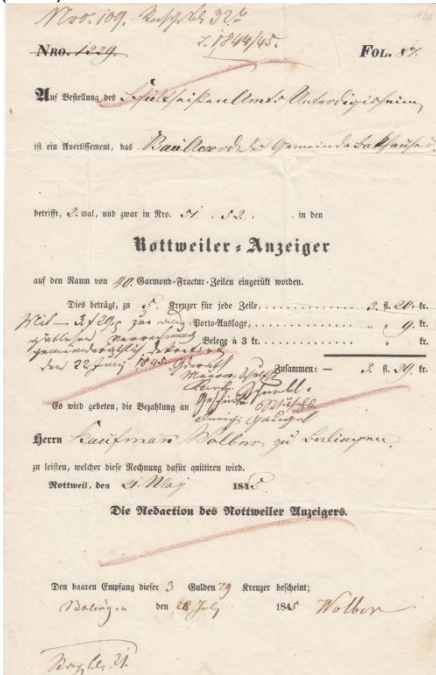 Nro. 109.
p. 1844/45.
NRO. 1229. FOL.
Auf Bestellung des Schultheißen Amts Unterdigisheim
ist ein Avertissement, das Gemeinde Backhauses
betrifft, 2. mal, und zwar in Nro. 51. 52. in den
Rottweiler-Anzeiger
auf den Raum von 40. Garmond-Fractur-Zeilen eingerükt worden.
Dies beträgt, zu 5. Kreuzer für jede Zeile, 3. fl. 20. kr.
Porto-Auslage, " 9. kr.
Belege à 3 kr. " kr.
Zusammen: 3. fl. 29. kr.
Mit — 3 f 29 x
gemeinderäthlich dekretirt
den 22 Juny 1845.
Es wird gebeten, die Bezahlung an
Herrn Kaufmann Wolber zu Balingen
zu leisten, welcher diese Rechnung dafür quittiren wird.
Rottweil, den May 1845.
Die Redaction des Rottweiler Anzeigers.
Den baaren Empfang dieser 3 Gulden 29 Kreuzer bescheint;
Balingen den 28 July 1845 Wolber